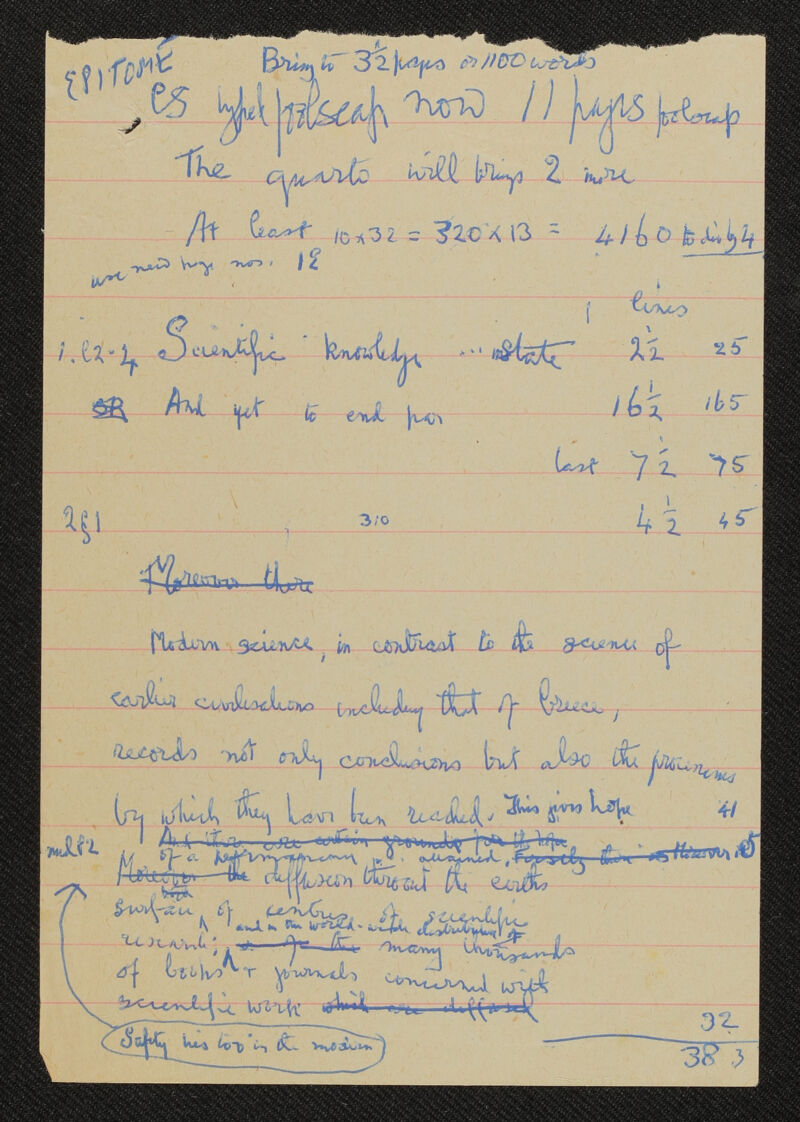 EPITOMÉ Bring to 3½ pages or 1100 words
typed foolscap now 11 pages foolscap
The quarto will bring 2 more
At least 10 x 32 = 320 x 13 = 4160 to div by 4
use new page nos. 12
lines
Scientific knowledge ... state 2½ 25
And yet to end par 16½ 165
last 7½ 75
2 § 1 310 4½ 45
Moreover there
Modern science, in contrast to the science of
earlier civilisations including that of Greece,
records not only conclusions but also the processes
by which they have been reached. This gives hope 41
And there are certain grounds for the hope
of a attained.
Moreover the diffusion throout the earths
surface both of centres of scientific
and in the world-wide distribution of
research; many thousands
of books + journals concerned with
scientific work which are diffused
32
Safety lies too in the modern
38 3